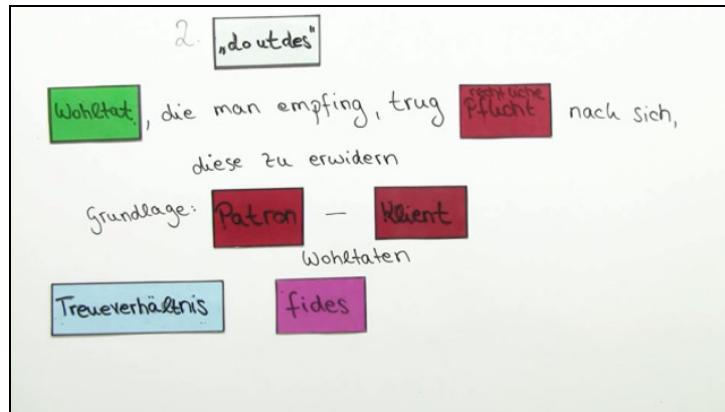 2. „do ut des“
Wohltat, die man empfing, trug rechtliche Pflicht nach sich,
diese zu erwidern
Grundlage: Patron – Klient
Wohltaten
Treueverhältnis fides